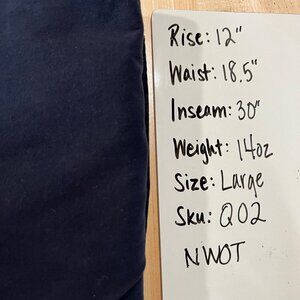 Rise: 12"
Waist: 18.5"
Inseam: 30"
Weight: 14oz
Size: Large
Sku: Q02
NWOT